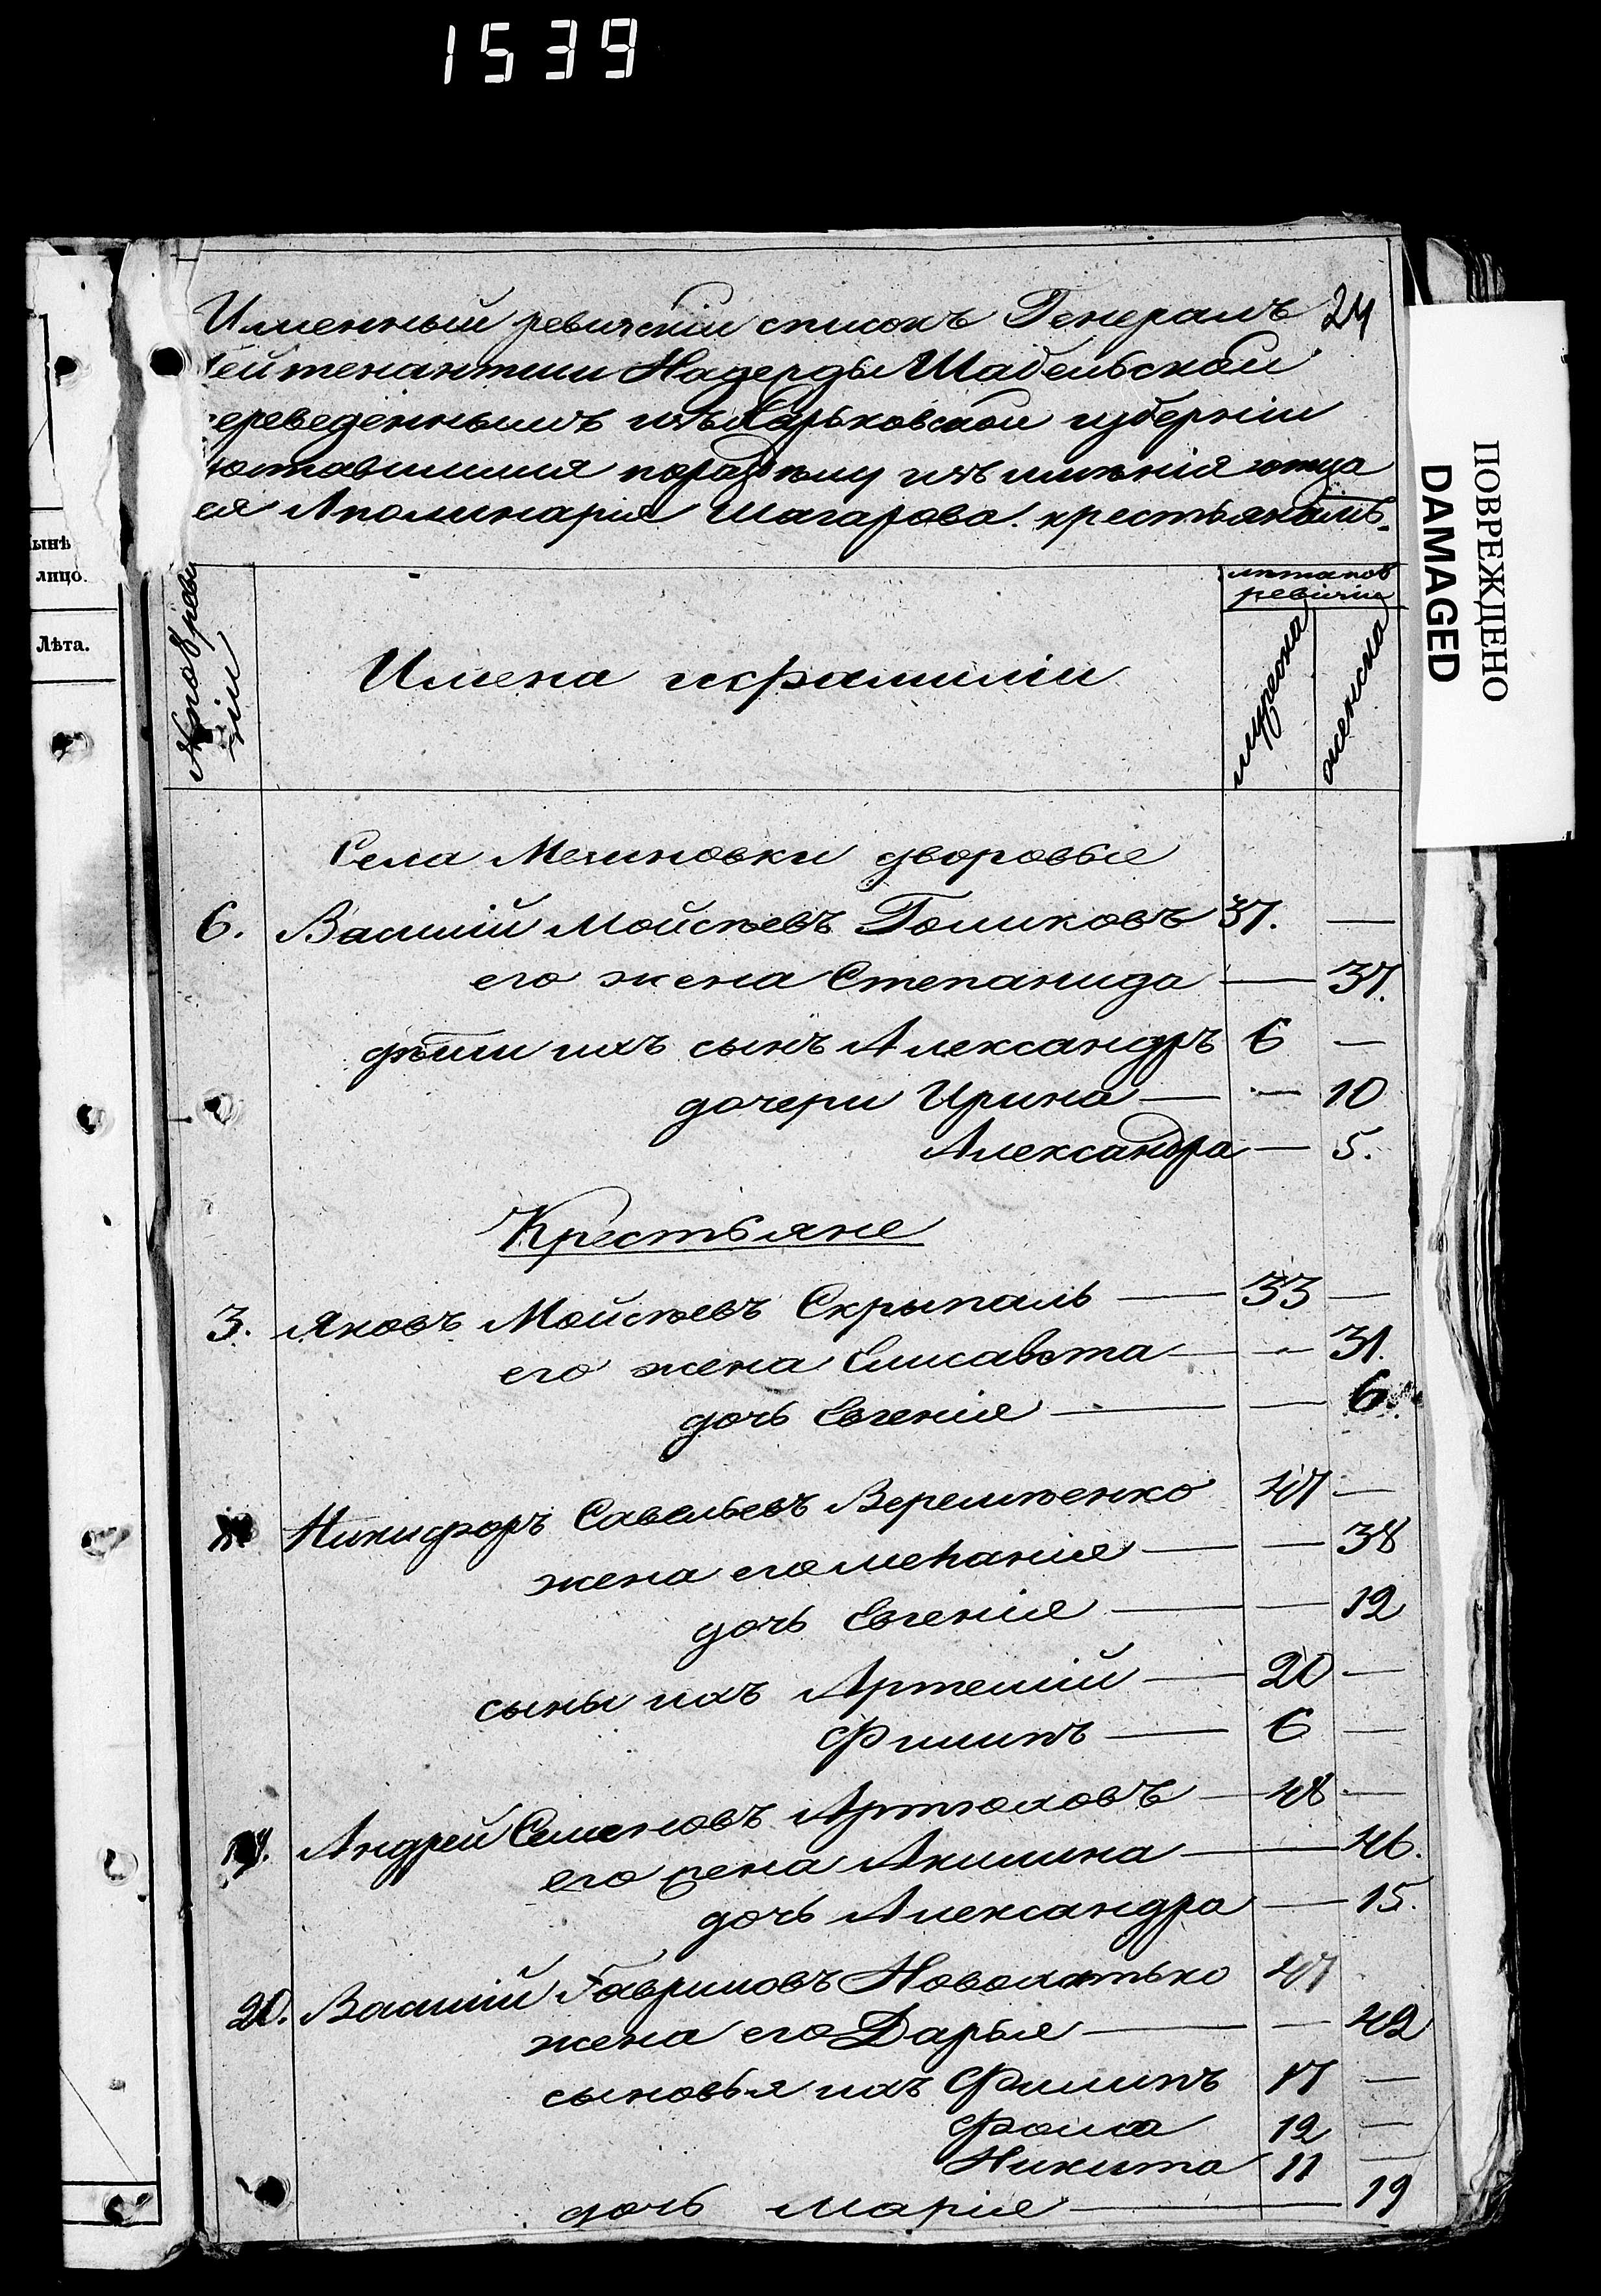 1539
Именный ревизскій списокъ Генералъ 24
Лейтенантши Надежды Шабельской
переведённымъ изъ Харьковской губерніи
доставшимся поразделу изъ имѣнія отца
ея Аполинарія Шагарова. крестьянамъ.
ПОВРЕЖДЕНО
DAMAGED
ынѣ
лицо.
Лѣта.
№ по 8 реви
зіи
Имена ифамиліи
лѣта по 8
ревизіи
мужеска
женска
Села Мечиновки дворовые
6. Василій Мойсѣевъ Голиковъ 37. —
его жена Степанида — 37.
дѣти ихъ сынъ Александръ 6 —
дочери Ирина — — 10
Александра — 5.
Крестьяне
3. Яковъ Мойсѣевъ Скрыпаль — 33 —
его жена Елисавета — — 31.
дочь Евгенія — — 6.
Никифоръ Савельевъ Веремѣенко 47 —
жена его Меланія — — 38
дочь Евгенія — — 12
сыны ихъ Артемій — 20 —
Филипъ — 6 —
Андрей Семеновъ Артюховъ — 48 —
его жена Акилина — 46.
дочь Александра — 15.
20. Василій Гавриловъ Новохатько 47
жена его Дарья — — 42
сыновья ихъ Филипъ 17 —
Фома 12 —
Никита 11 —
дочь Марія — 19